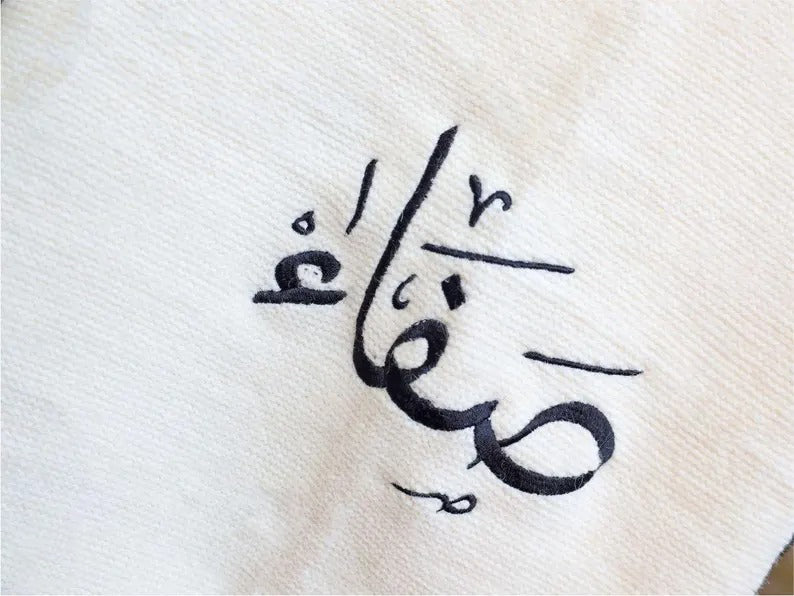 صَفَاءْ